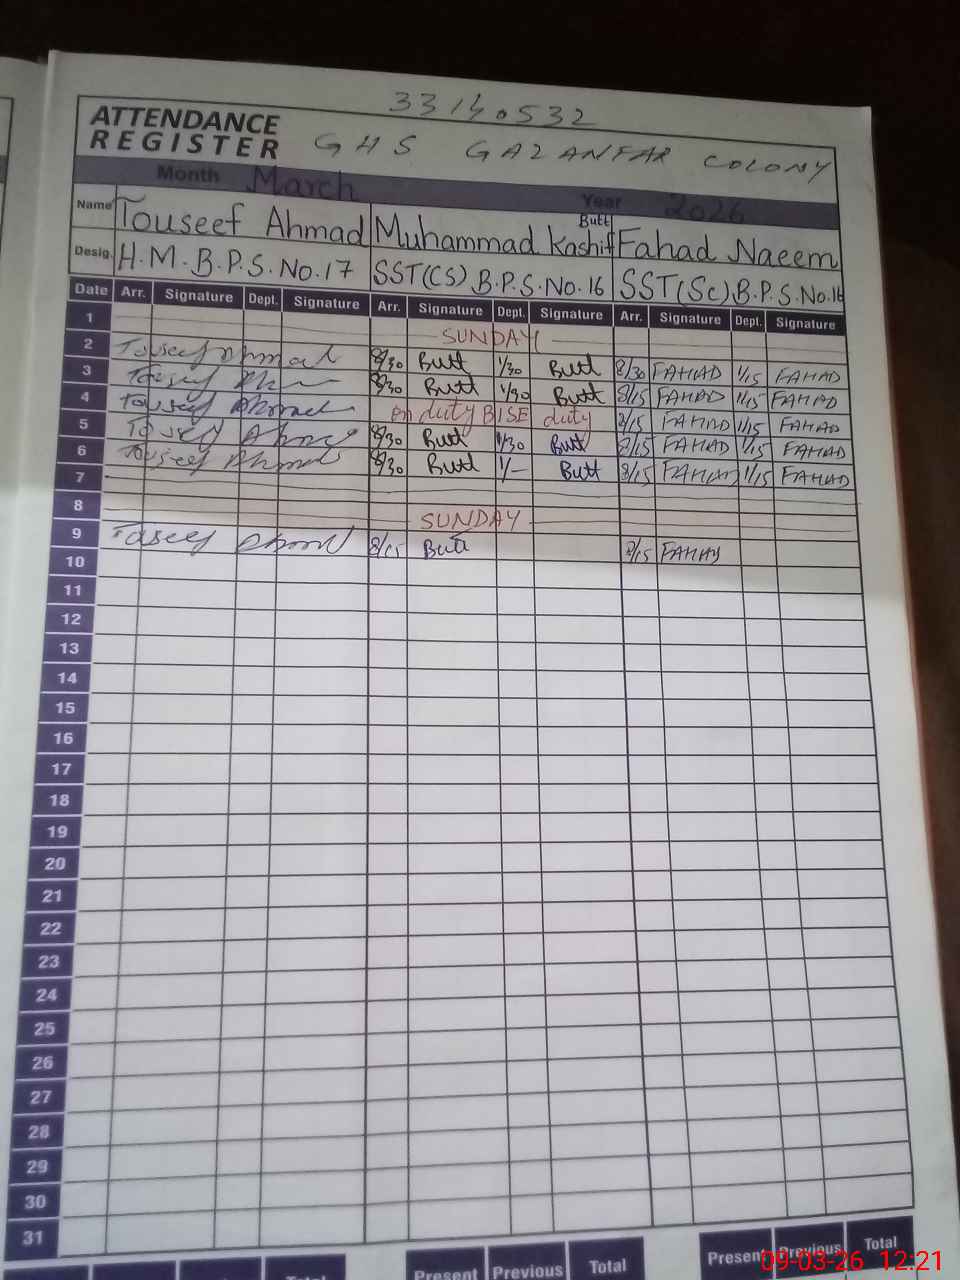 33140532
ATTENDANCE
REGISTER GHS GAZANFAR COLONY
Month March Year 2026
Name Touseef Ahmad Muhammad Kashif Butt Fahad Naeem
Desig. H.M.B.P.S.No.17 SST(CS) B.P.S.No.16 SST(Sc) B.P.S.No.16
Date Arr. Signature Dept. Signature Arr. Signature Dept. Signature Arr. Signature Dept. Signature
1 SUNDAY
2 Touseef Ahmad 8/30 Butt 1/30 Butt 8/30 FAHAD 1/15 FAHAD
3 Touseef 8/30 Butt 1/30 Butt 8/15 FAHAD 1/15 FAHAD
4 Touseef Ahmad On duty BISE duty 8/15 FAHAD 1/15 FAHAD
5 Touseef Ahmad 8/30 Butt 1/30 Butt 8/15 FAHAD 1/15 FAHAD
6 Touseef Ahmad 8/30 Butt 1/- Butt 8/15 FAHAD 1/15 FAHAD
7
8 SUNDAY
9 Touseef Ahmad 8/15 Butt 8/15 FAHAD
10
11
12
13
14
15
16
17
18
19
20
21
22
23
24
25
26
27
28
29
30
31
Total Present Previous Total Present Previous Total
09-03-26 12:21